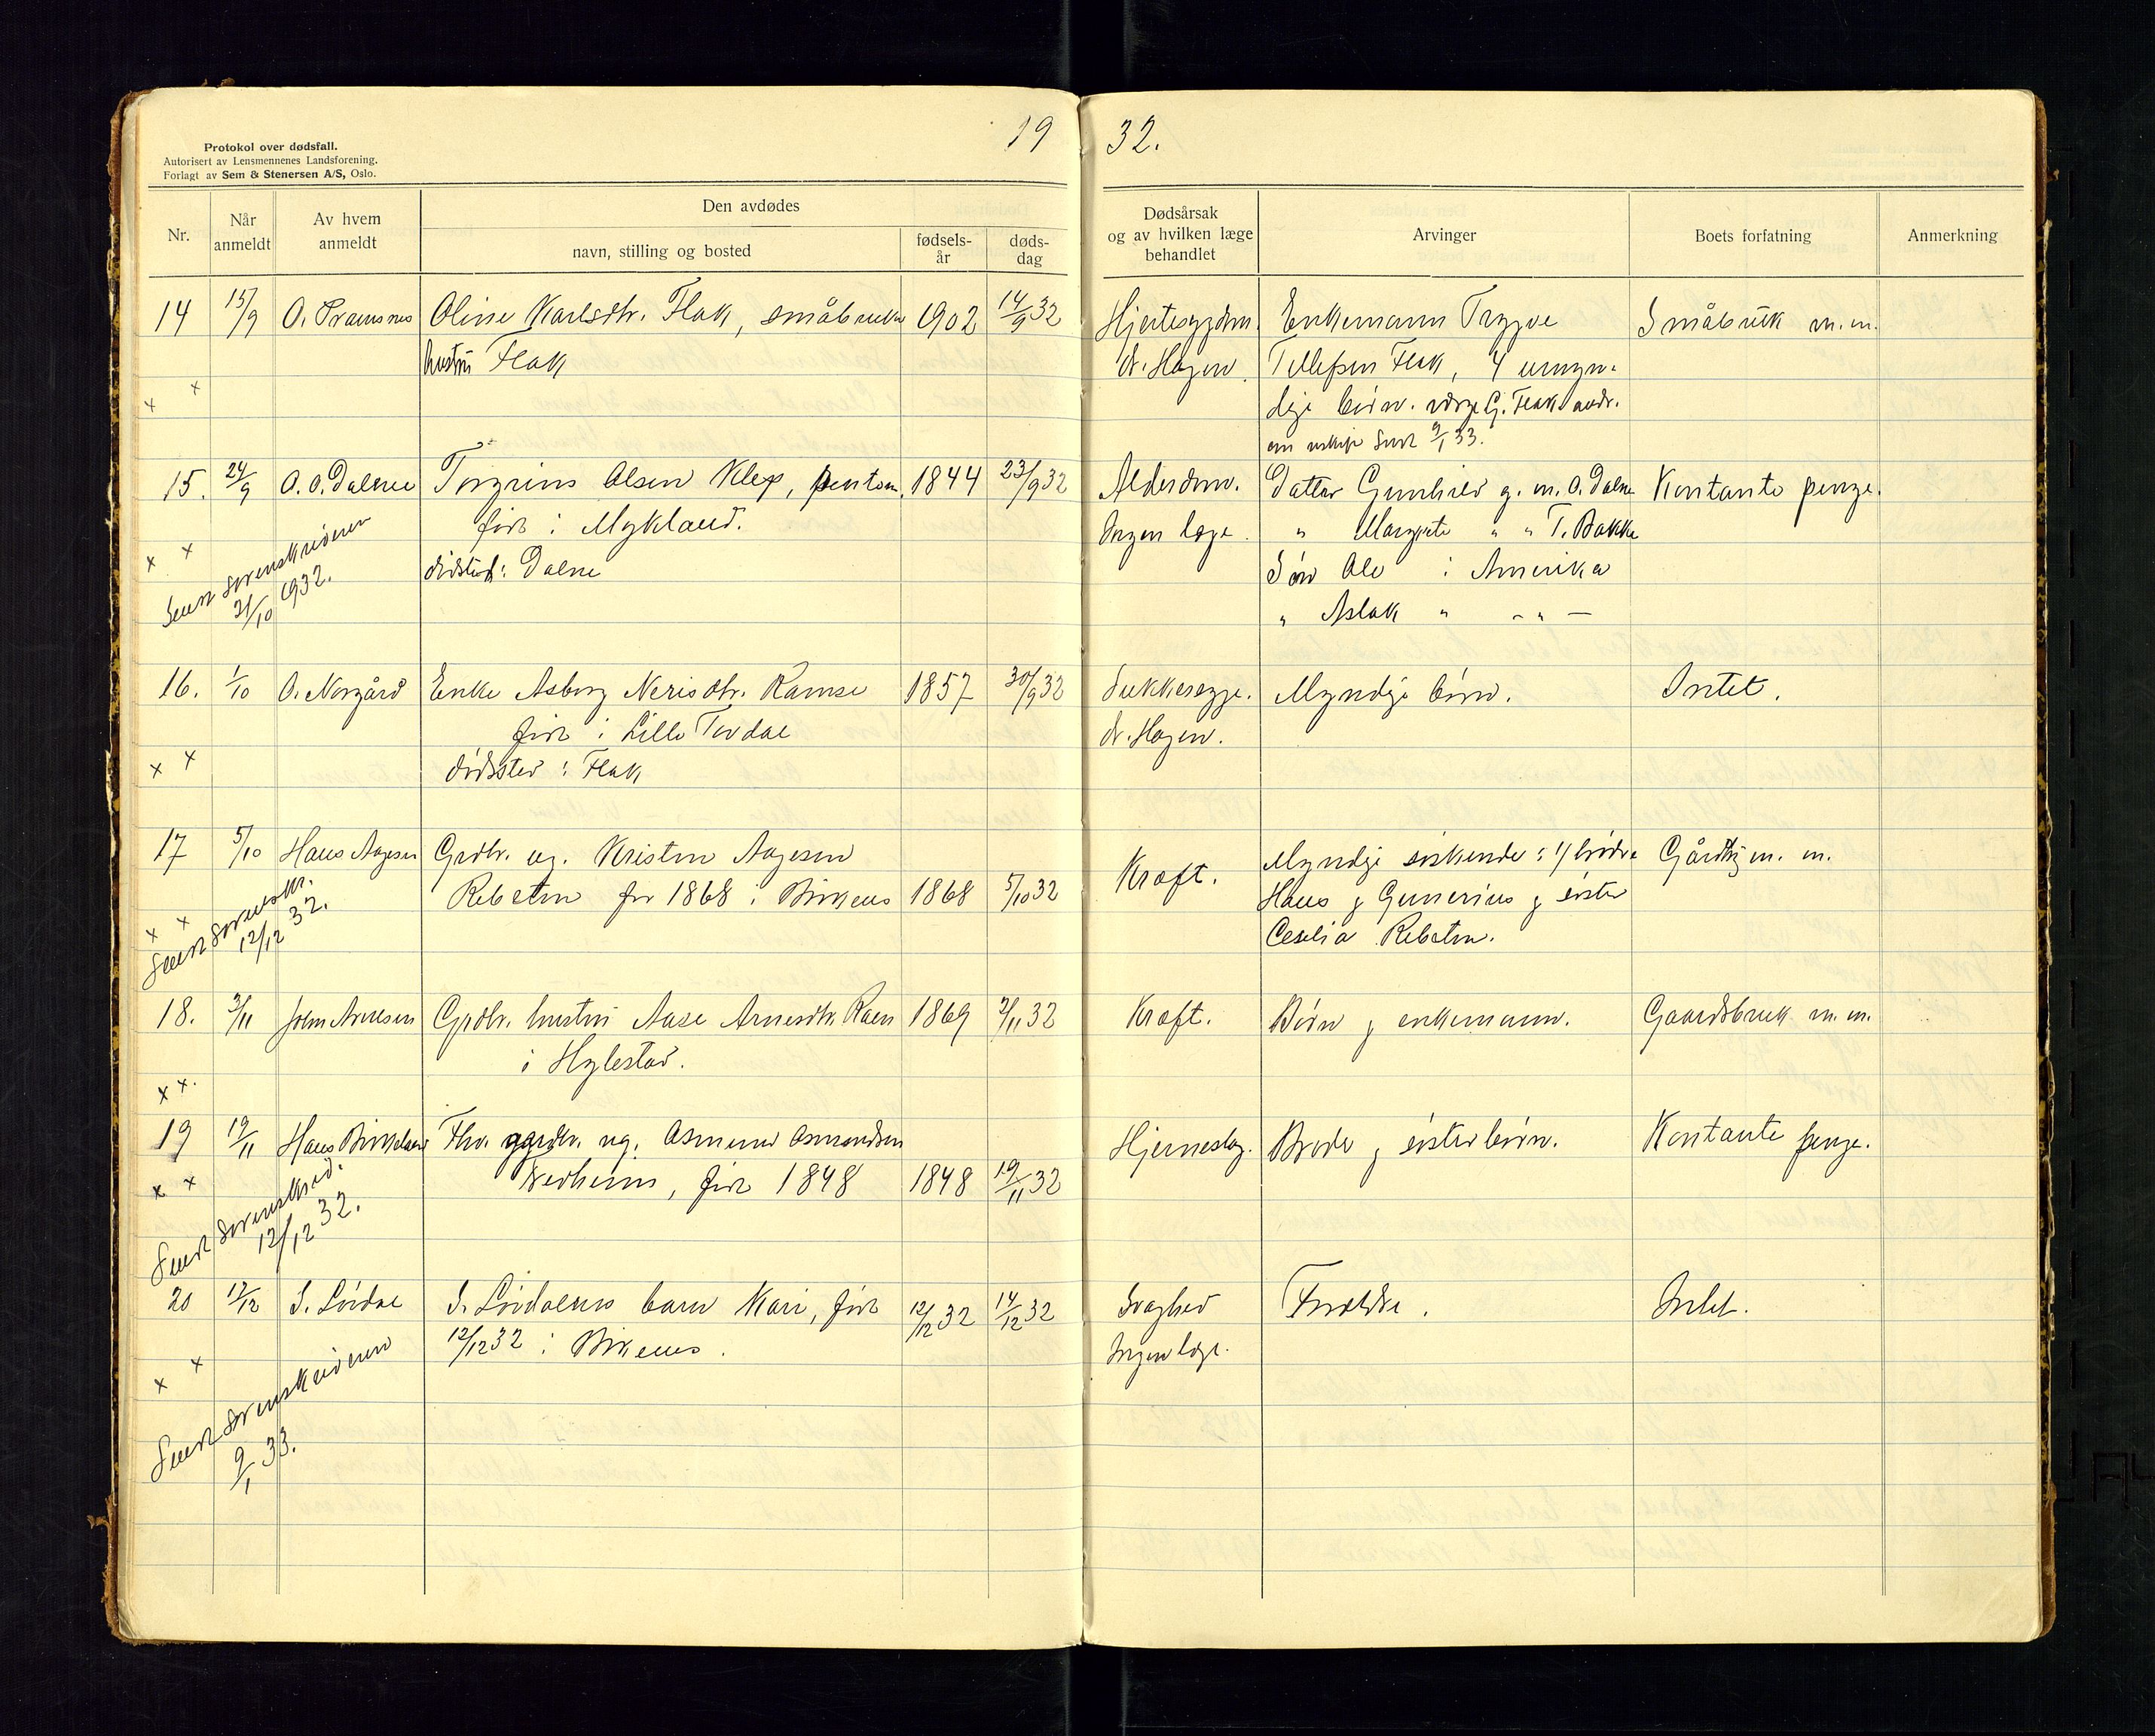 19 32.
Protokol over dødsfall.
Autorisert av Lensmennenes Landsforening.
Forlagt av Sem & Stenersen A/S, Oslo.
Nr.
Når anmeldt
Av hvem anmeldt
Den avdødes
navn, stilling og bosted
fødsels-år
døds-dag
Dødsårsak og av hvilken læge behandlet
Arvinger
Boets forfatning
Anmerkning
14 15/9 O. Oline Karlsdtr. Flak, småbruker 1902 14/9 32 Hjertesygdom. Enkemann Trygve Småbruk m.m.
hustru Flak dr. Hagen. Tellefsen Flak, 4 umyn-
x x dige børn. verge G. Flak
9/1 33.
15. 24/9 O. O. Dalene Torgrim Olsen Klep, 1844 23/9 32 Alderdom. Datter Gunhild g. m. O. Dalne Kontante penge.
født i Mykland. Ingen læge. " Margrete " " T. Bakke
x x Sendt Sorenskriveren dødsted: Dalne Søn Ole i Amerika
31/10 1932. " Aslak " - " -
16. 1/10 O. Norgård Enke Asborg Nerisdtr. Ramse 1857 30/9 32 Sukkersyge. Myndige børn. Intet.
født i Lille Tovdal dr. Hagen.
x x dødssted: Flak
17 5/10 Hans Aagesen Grdbr. ug. Kristen Aagesen Myndige søskende: 4 brødre Gårdbr m. m.
Rebsten før 1868 i Birkenes 1868 5/10 32 Kræft. Hans g Gunerius g søster
x x Sendt Sorenskr. 12/12 32. Ceselia Rebsten.
18. 3/11 John Arnesen Grdbr. hustru Aase Arnesdtr. Raen 1869 2/11 32 Kræft. Børn g enkemann. Gaardsbruk m. m.
i Hylestad.
x x.
19 19/11 Hans Birkelan Fhv. grdbr. ug. Asmund Asmundsen Hjerneslag. Broder g søsterbørn. Kontante penge.
x x født 1848 1848 19/11 32
Sendt Sorenskriv. 12/12 32.
20 17/12 S. Lördal S. Lördalens barn Kari, født 12/12 32 14/12 32 Svaghed Foreldre. Intet.
12/12 32 i Birkenes. Ingen læge.
x x
Sendt Sorenskriveren
9/1 33.